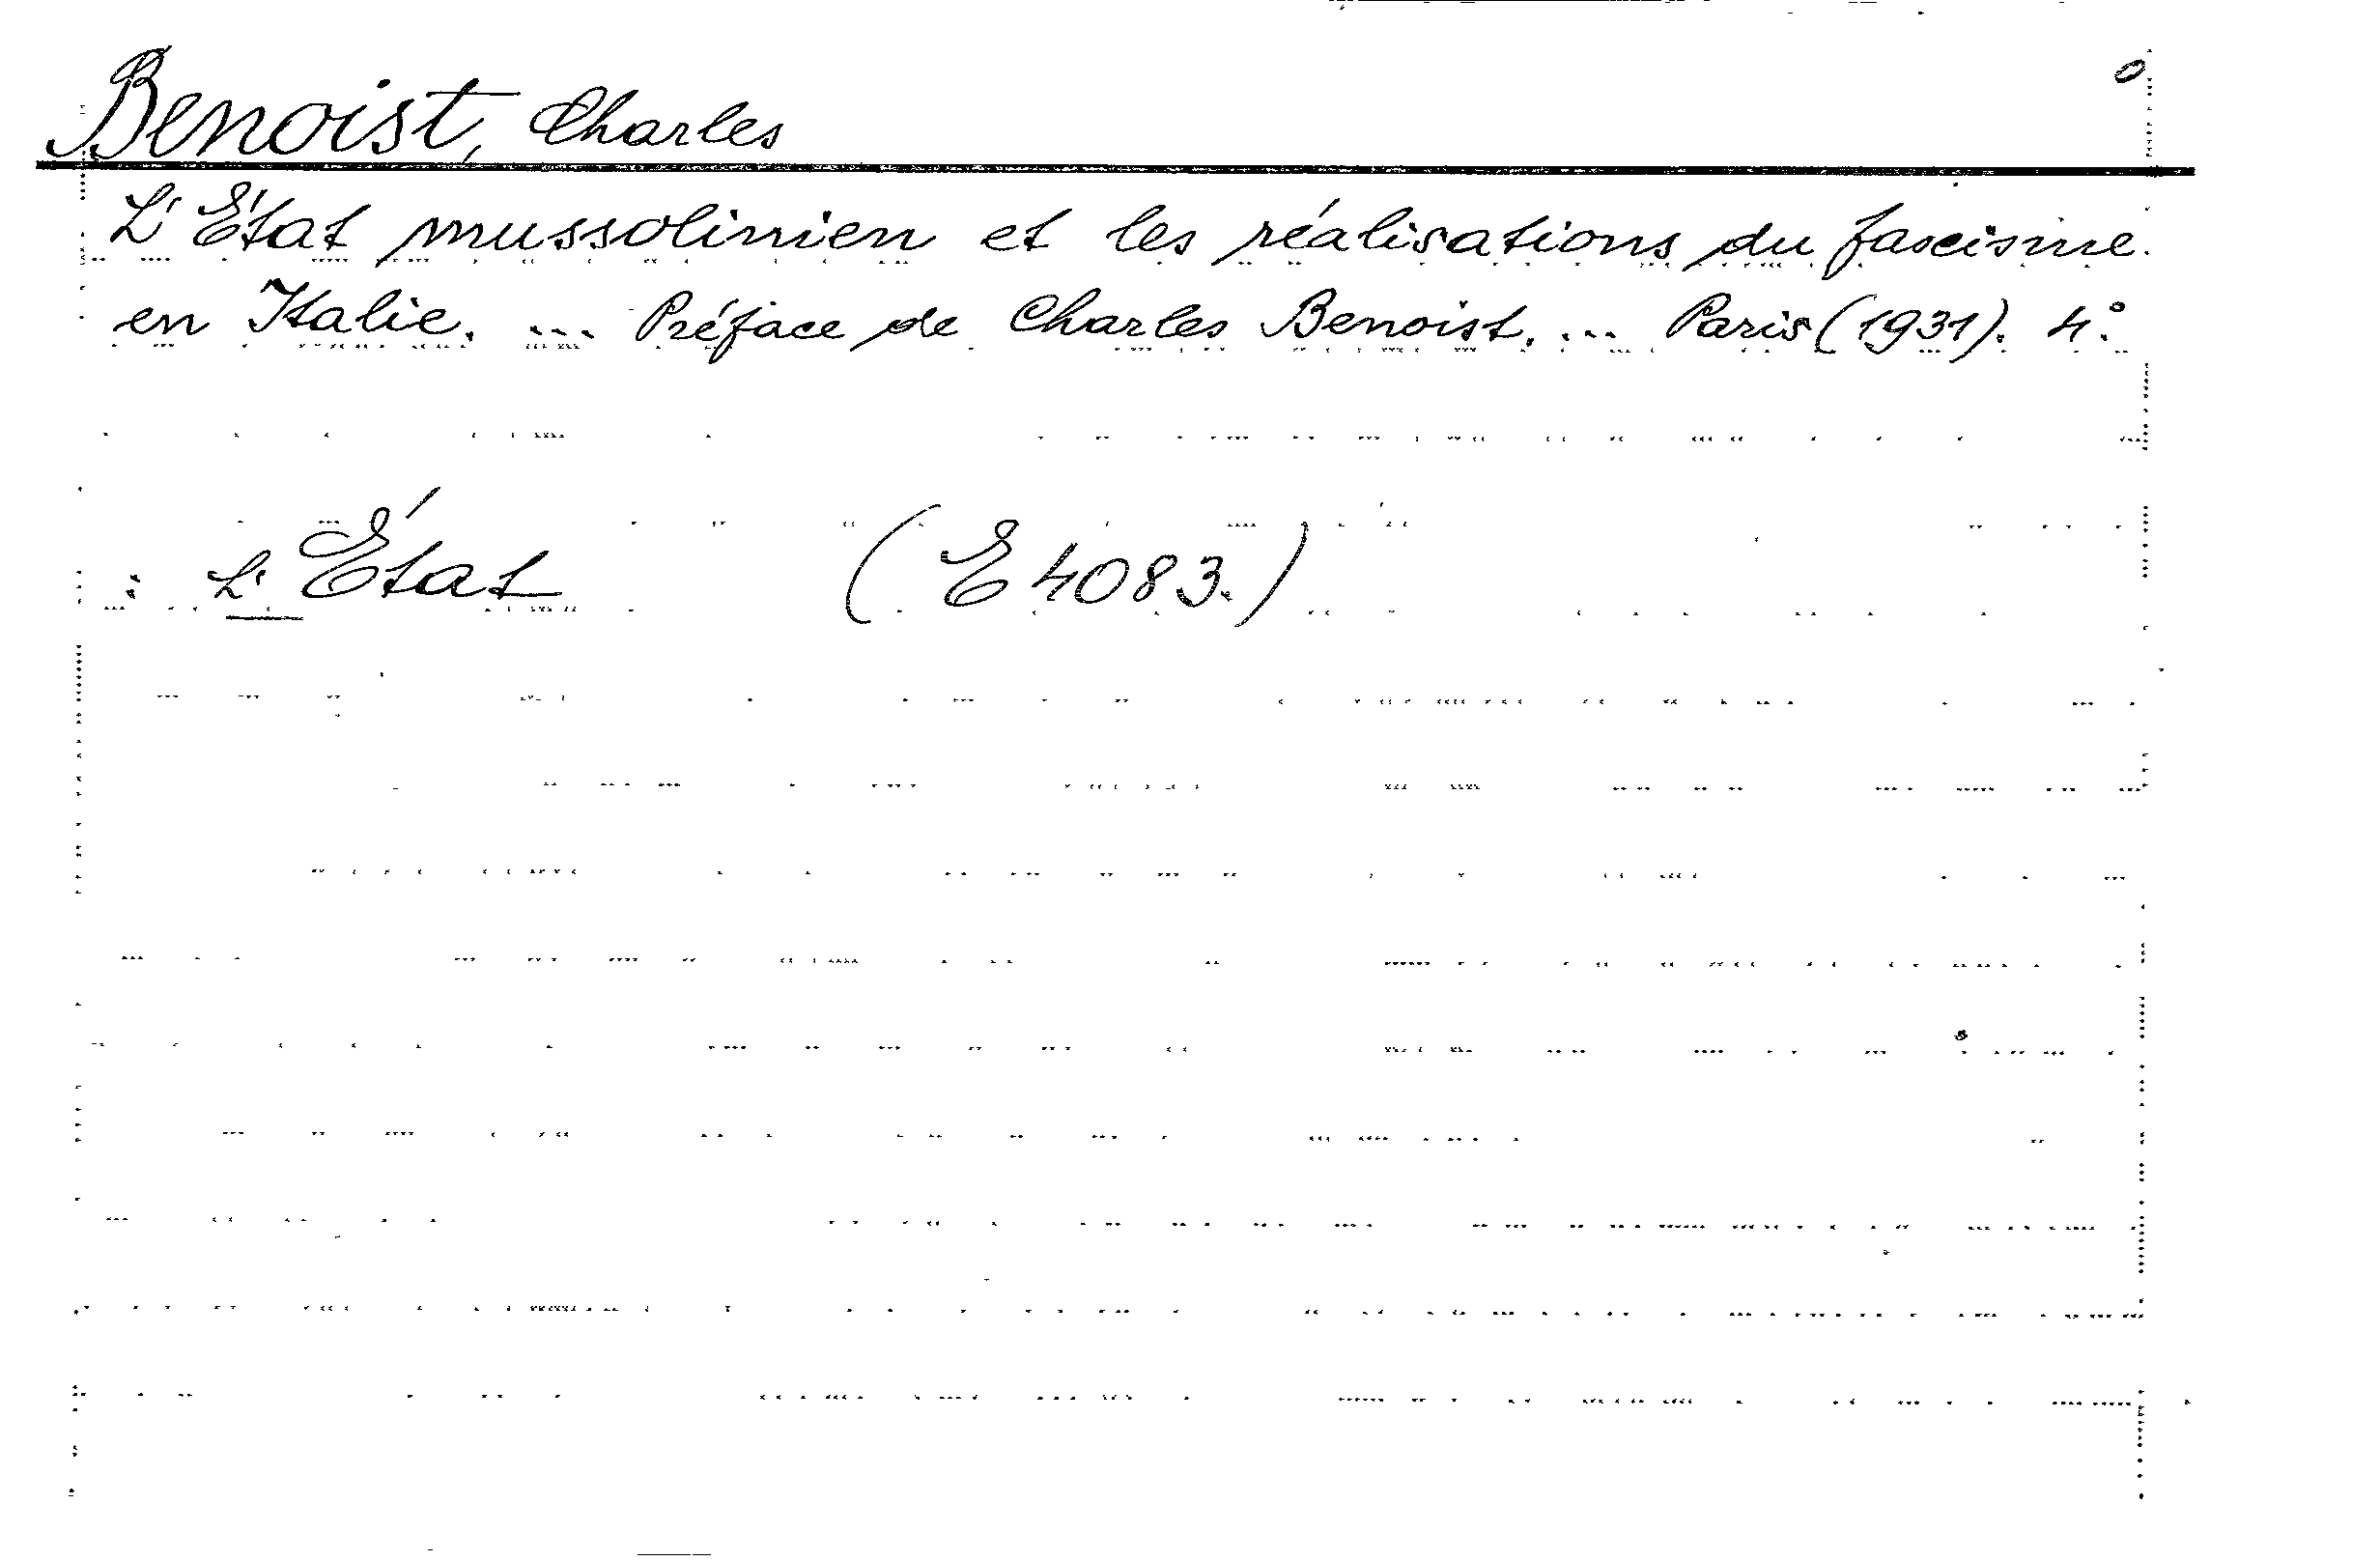 Benoist, Charles
L'État mussolinien et les réalisations du fascisme
en Italie. ... Préface de Charles Benoist. ... Paris (1931). 4:o
: L'État (E 4083.)